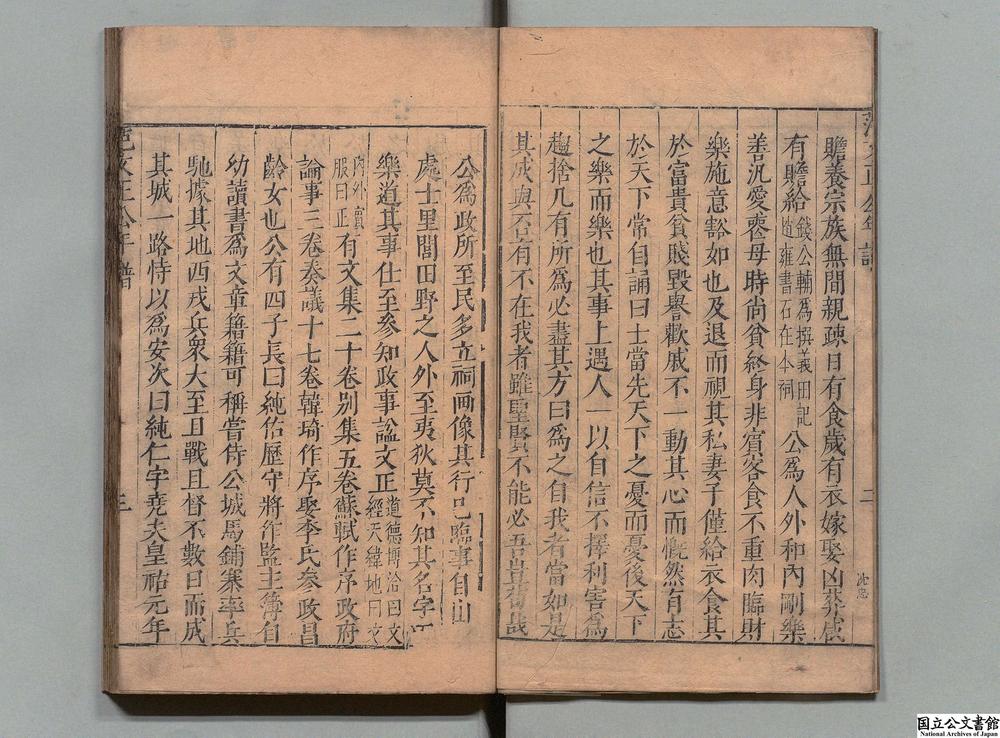 贍養宗族無間親疎日有食歲有衣嫁娶凶葬咸
有贍給錢公輔爲撰義田記
公爲人外和內剛樂
善汎愛喪母時尚貧終身非賓客食不重肉臨財
樂施意豁如也及退而視其私妻子僅給衣食其
於富貴貧賤毀譽歡戚不一動其心而慨然有志
於天下常自誦曰士當先天下之憂而憂後天下
之樂而樂也其事上遇人一以自信不擇利害爲
趨捨凡有所爲必盡其方曰爲之自我者當如是
其成與否有不在我者雖聖賢不能必吾豈苟哉
沈忠
公爲政所至民多立祠画像其行己臨事自山
處士里閭田野之人外至夷狄莫不知其名字
樂道其事仕至參知政事謚文正道德博洽曰文經天緯地曰文
內外賓服曰正有文集二十卷別集五卷蘇軾作序政府
論事三卷奏議十七卷韓琦作序娶李氏參政昌
齡女也公有四子長曰純佑歷守將作監主簿自
幼讀書爲文章籍籍可稱嘗侍公城馬鋪寨率兵
馳據其地西戎兵衆大至且戰且督不數日而成
其城一路恃以爲安次曰純仁字堯夫皇祐元年
范文正公年譜
三
国立公文書館
National Archives of Japan